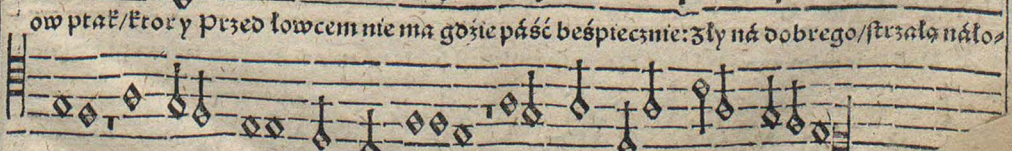 ow ptak/ktory Przed łowcem nie ma gdźie páść beśpiecznie: Zły ná dobrego/strzałą náło-